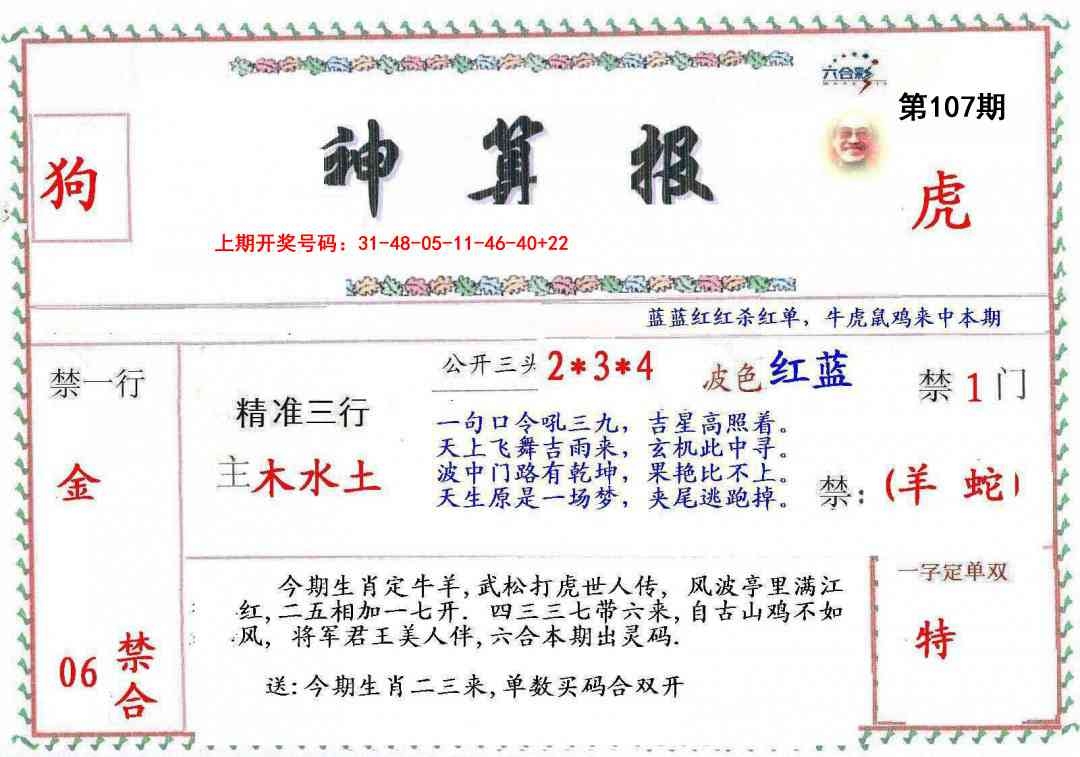 六合彩
第107期
狗
神算报
虎
上期开奖号码：31-48-05-11-46-40+22
蓝蓝红红杀红单，牛虎鼠鸡来中本期
禁一行
金
06
禁合
精准三行
主木水土
公开三头 2*3*4
波色红蓝
一句口令吼三九，吉星高照着。
天上飞舞吉雨来，玄机此中寻。
波中门路有乾坤，果艳比不上。
天生原是一场梦，夹尾逃跑掉。
禁1门
禁：(羊 蛇)
今期生肖定牛羊,武松打虎世人传，风波亭里满江
红,二五相加一七开. 四三三七带六来,自古山鸡不如
凤，将军君王美人伴,六合本期出灵码.
送:今期生肖二三来,单数买码合双开
一字定单双
特